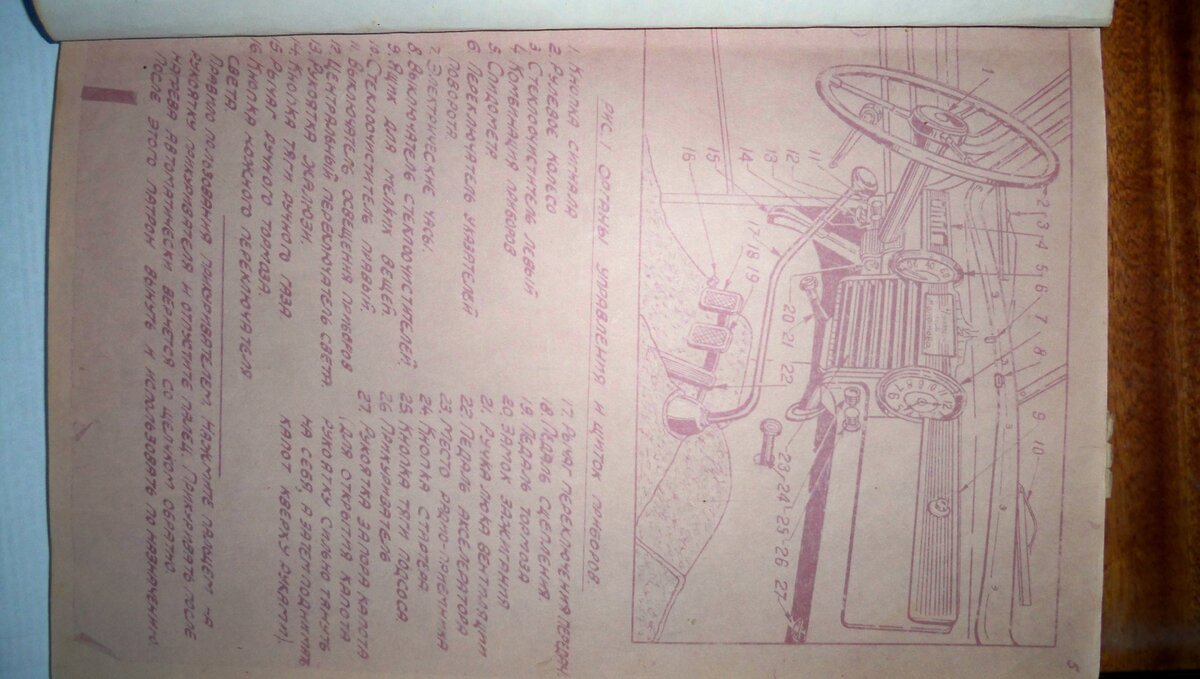 5
1
2
3
4
5
6
7
8
9
10
11
12
13
14
15
16
17
18
19
20
21
22
23
24
25
26
27
РИС. 1 ОРГАНЫ УПРАВЛЕНИЯ И ЩИТОК ПРИБОРОВ.
1. КНОПКА СИГНАЛА
2. РУЛЕВОЕ КОЛЬСО
3. СТЕКЛООЧИСТИТЕЛЬ ЛЕВЫЙ
4. КОМБИНАЦИЯ ПРИБОРОВ
5. СПИДОМЕТР
6. ПЕРЕКЛЮЧАТЕЛЬ УКАЗАТЕЛЕЙ
ПОВОРОТА
7. ЭЛЕКТРИЧЕСКИЕ ЧАСЫ.
8. ВЫКЛЮЧАТЕЛЬ СТЕКЛООЧИСТИТЕЛЕЙ.
9. ЯЩИК ДЛЯ МЕЛКИХ ВЕЩЕЙ
10. СТЕКЛООЧИСТИТЕЛЬ ПРАВЫЙ.
11. ВЫКЛЮЧАТЕЛЬ ОСВЕЩЕНИЯ ПРИБОРОВ
12. ЦЕНТРАЛЬНЫЙ ПЕРЕКЛЮЧАТЕЛЬ СВЕТА.
13. РУКОЯТКА ЖАЛЮЗИ.
14. КНОПКА ТЯГИ РУЧНОГО ГАЗА
15. РЫЧАГ РУЧНОГО ТОРМОЗА.
16. КНОПКА НОЖНОГО ПЕРЕКЛЮЧАТЕЛЯ
СВЕТА
17. РЫЧАГ ПЕРЕКЛЮЧЕНИЯ ПЕРЕДАЧ.
18. ПЕДАЛЬ СЦЕПЛЕНИЯ.
19. ПЕДАЛЬ ТОРМОЗА
20. ЗАМОК ЗАЖИГАНИЯ
21. РУЧКА ЛЮКА ВЕНТИЛЯЦИИ
22. ПЕДАЛЬ АКСЕЛЕРАТОРА
23. МЕСТО РАДИО-ПРИЕМНИКА
24. КНОПКА СТАРТЕРА.
25. КНОПКА ТЯГИ ПОДСОСА
26. ПРИКУРИВАТЕЛЬ
27. РУКОЯТКА ЗАПОРА КАПОТА
(ДЛЯ ОТКРЫТИЯ КАПОТА
РУКОЯТКУ СИЛЬНО ТЯНУТЬ
НА СЕБЯ, А ЗАТЕМ ПОДНИМАТЬ
КАПОТ КВЕРХУ РУКАМИ)
ПРАВИЛО ПОЛЬЗОВАНИЯ ПРИКУРИВАТЕЛЕМ: НАЖМИТЕ ПАЛЬЦЕМ НА
РУКОЯТКУ ПРИКУРИВАТЕЛЯ И ОТПУСТИТЕ ПАЛЕЦ. ПРИКУРИВАТЕЛЬ ПОСЛЕ
НАГРЕВА АВТОМАТИЧЕСКИ ВЕРНЕТСЯ СО ЩЕЛЧКОМ ОБРАТНО.
ПОСЛЕ ЭТОГО ПАТРОН ВЫНУТЬ И ИСПОЛЬЗОВАТЬ ПО НАЗНАЧЕНИЮ